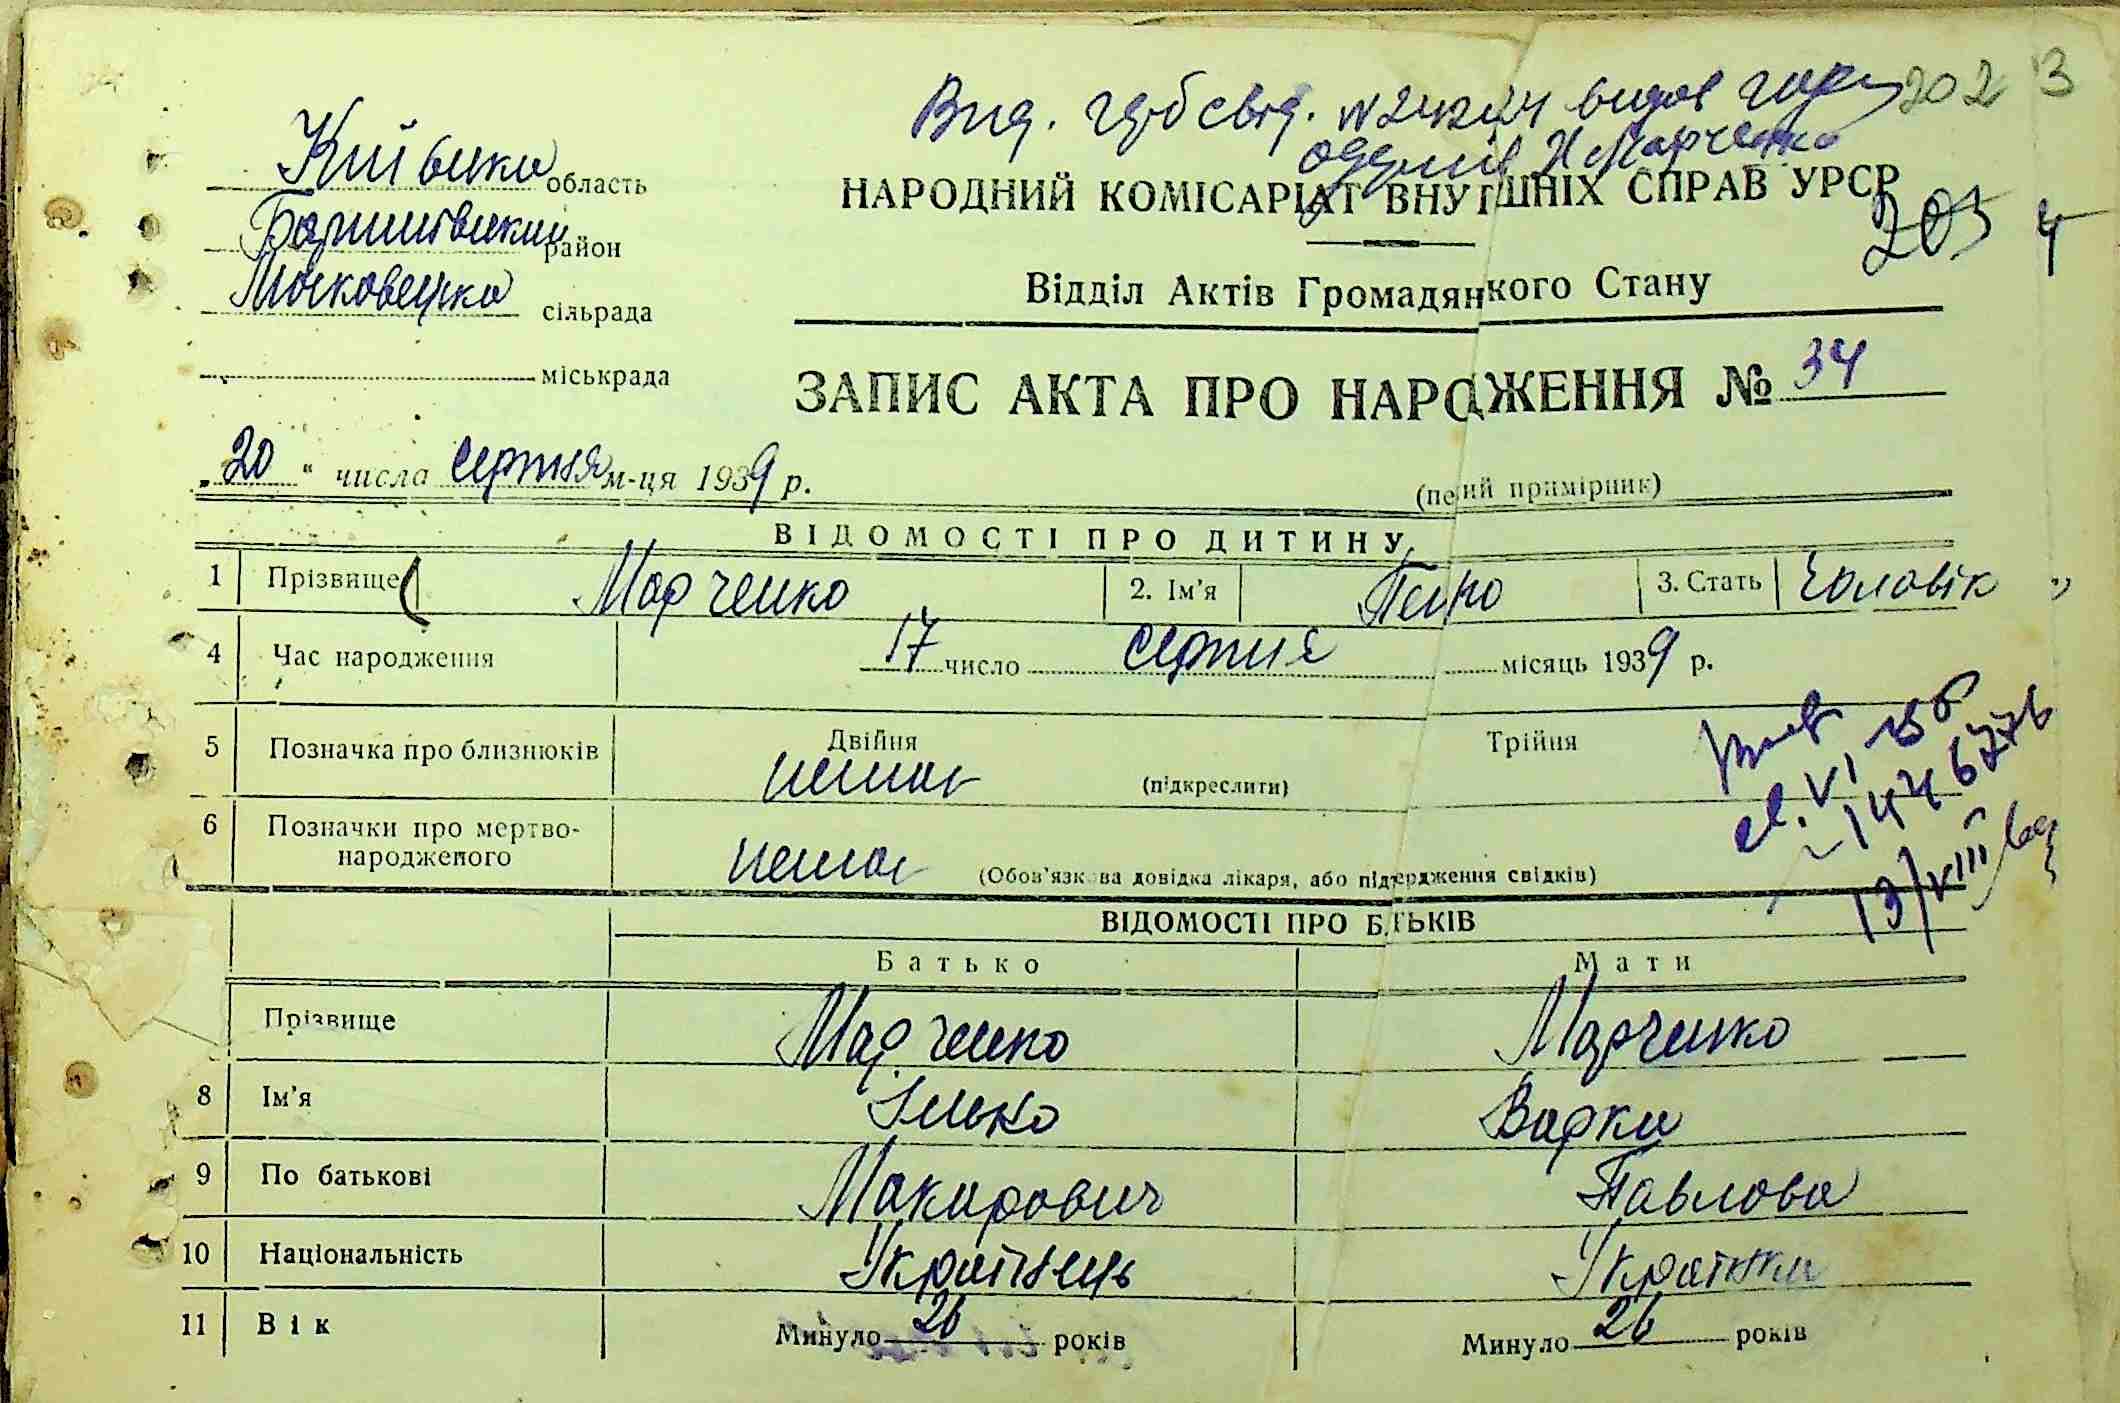 202 3
Київська область
НАРОДНИЙ КОМІСАРІАТ ВНУТШНІХ СПРАВ УРСР
Баришівський район
203 4
Масковецька сільрада
Відділ Актів Громадянкого Стану
міськрада
ЗАПИС АКТА ПРО НАРОДЖЕННЯ № 34
„20“ числа серпня м-ця 1939 р.
(пе ий примірник)
ВІДОМОСТІ ПРО ДИТИНУ
1 Прізвище Марченко 2. Ім'я Петро 3. Стать Чоловік
4 Час народження 17 число серпня місяць 1939 р.
5 Позначка про близнюків Двійня немає (підкреслити) Трійня
6 Позначки про мертво-
народженого немає (Обов'язкова довідка лікаря, або підтердження свідків)
13/VIII
ВІДОМОСТІ ПРО Б ТЬКІВ
Батько Мати
Прізвище Марченко Марченко
8 Ім'я Ілько Варка
9 По батькові Макарович Павлова
10 Національність Українець Українка
11 Вік Минуло 26 років Минуло 26 років